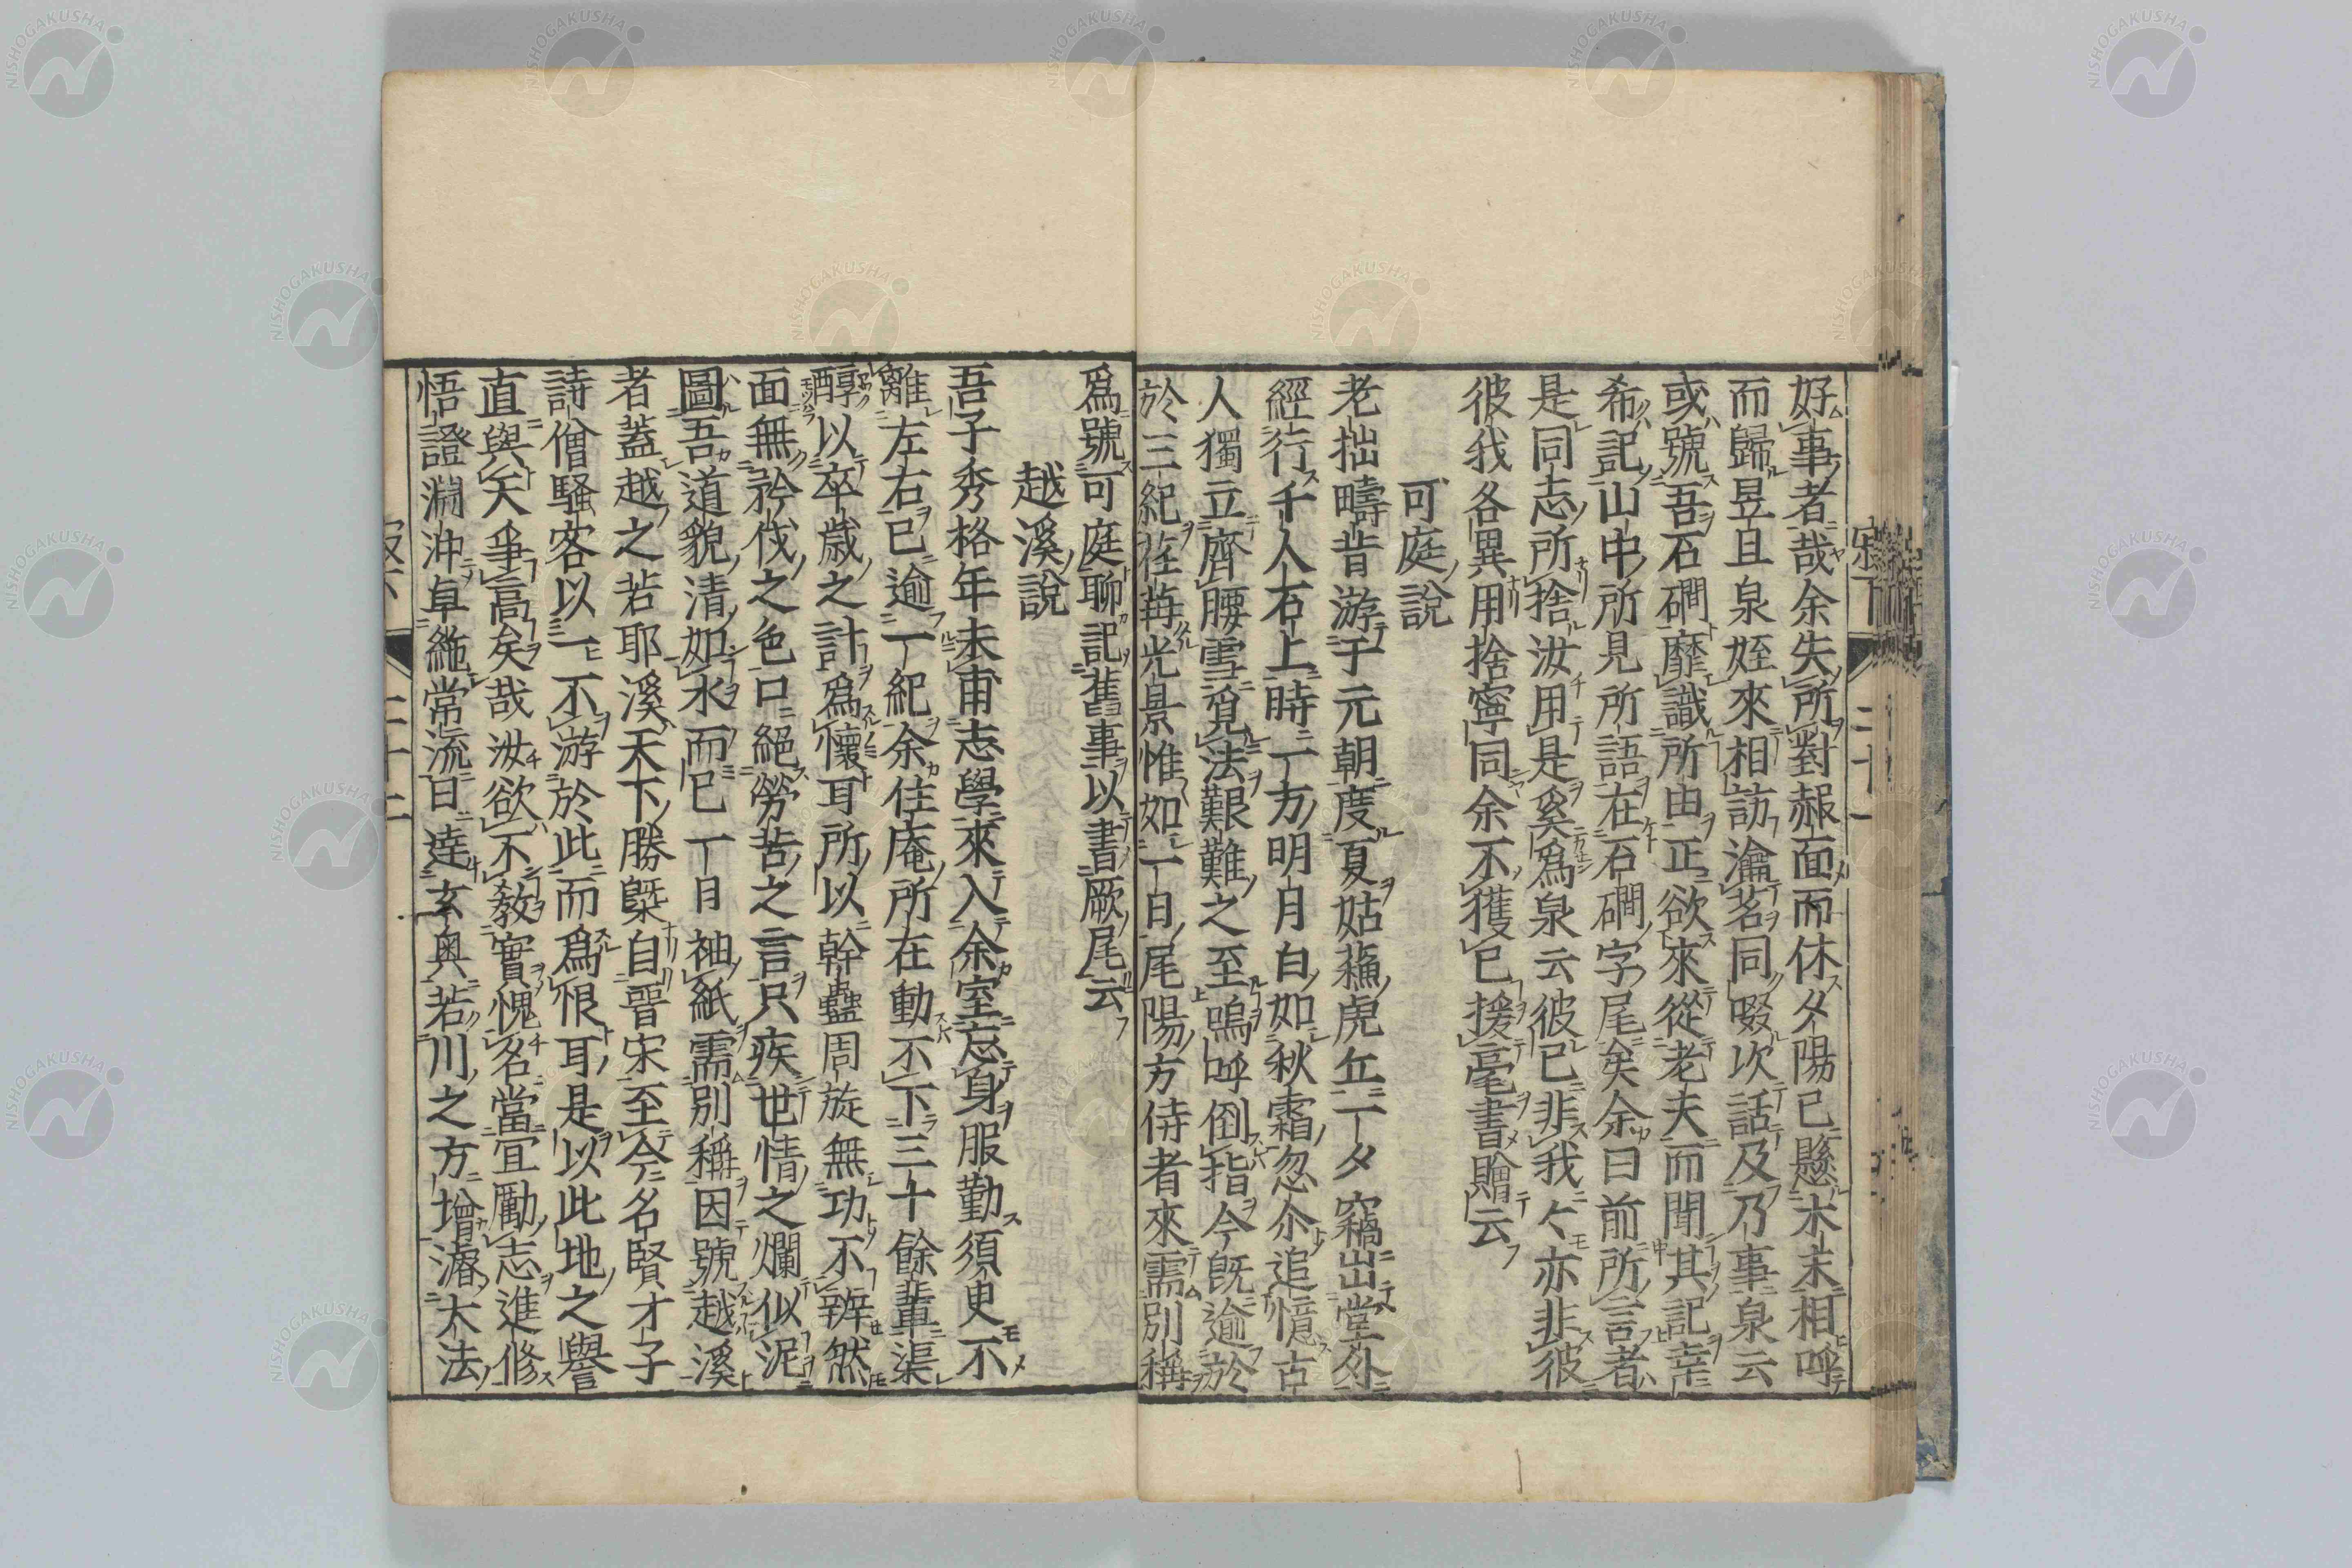 好事者哉余失所對赧面而休夕陽已懸木末相呼
而歸昱且泉姪來相訪瀹茗同啜次話及乃事泉云
或號吾石磵靡識所由正欲來從老夫而聞其記幸
希記山中所見所語在石磵字尾矣余曰前所言者
是同志所捨汝用是奚爲泉云彼已非我々亦非彼
彼我各異用捨寧同余不獲已援毫書贈云
可庭說
老拙疇昔游于元朝度夏姑蘓虎丘一夕竊出堂外
經行千人石上時一方明月白如秋霜忽尒追憶古
人獨立齊腰雪覓法艱難之至嗚呼倒指今既逾於
於三紀荏苒光景惟如一日尾陽方侍者來需別稱
爲號可庭聊記舊事以書厥尾云
越溪說
吾子秀格年未甫志學來入余室忘身服勤須臾不
離左右已逾一紀余住庵所在動不下三十餘輩渠
醇以卒歲之計爲懷耳所以幹蠱周旋無功不辨然
面無矜伐之色口絕勞苦之言只疾世情之爛似泥
圖吾道貌清如水而已一日袖紙需別稱因號越溪
者蓋越之若耶溪天下勝槩自晉宋至今名賢才子
詩僧騷客以一不游於此而爲恨耳是以此地之譽
直與天爭高矣哉汝欲不教實愧名當宜勵志進修
悟證淵沖阜絁常流日達玄奥若川之方增濬大法
二十一
二十二